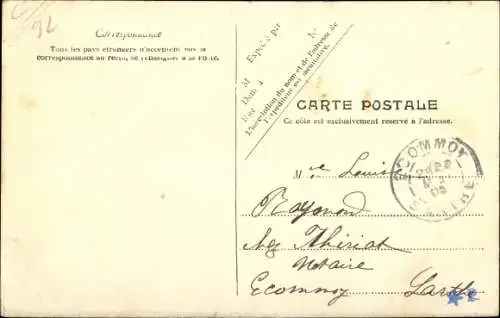 92
Correspondance
Tous les pays étrangers n'acceptent pas la
correspondance au recto, se renseigner à la Poste.
Expédié par
M
Dans
Rue
N°
L'inscription du nom et de l'adresse de
l'expéditeur est facultative.
CARTE POSTALE
Ce côté est exclusivement réservé à l'adresse.
ECOMMOY
SARTHE
05
Mlle Louise
Raymond
chez Thiriat
Notaire
Ecommoy Sarthe